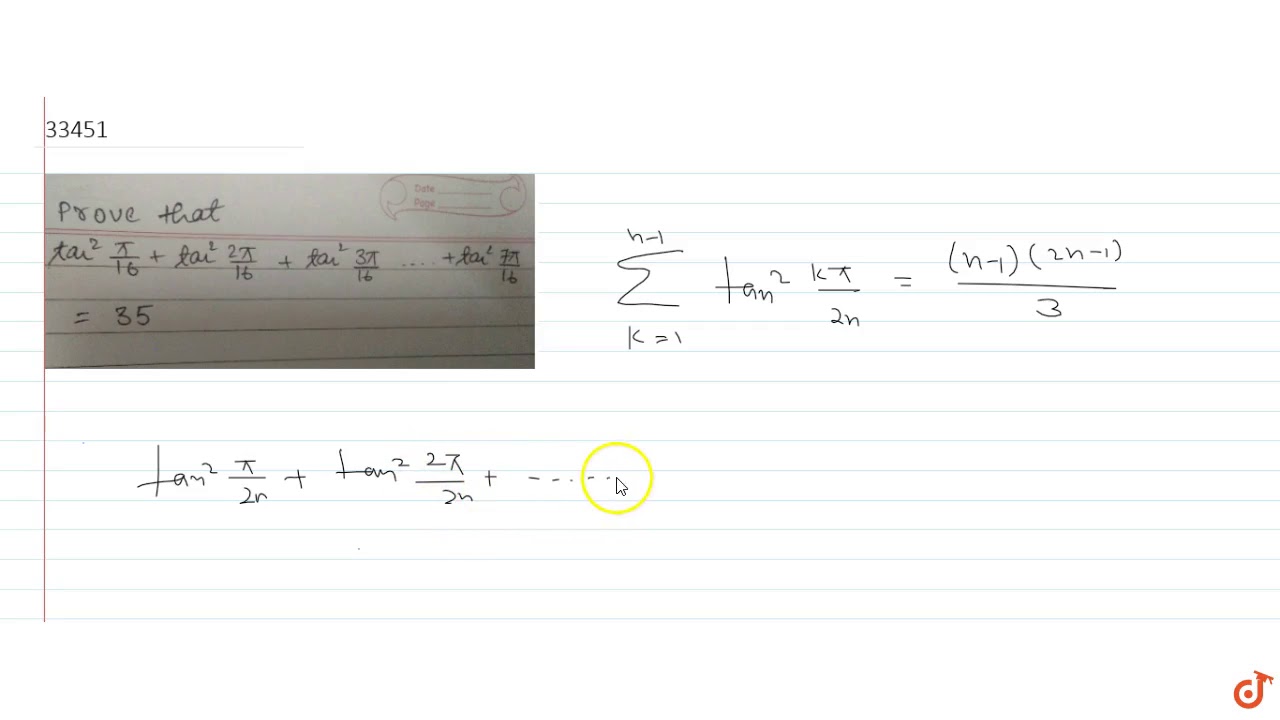 33451
Date
Page
Prove that
tan² π/16 + tan² 2π/16 + tan² 3π/16 .... + tan² 7π/16
= 35
n-1
∑ tan² kπ/2n = (n-1)(2n-1)/3
k=1
tan² π/2n + tan² 2π/2n + ------